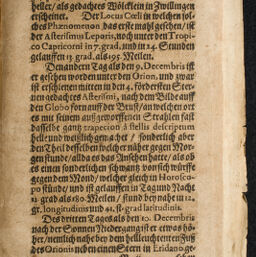 heller/ als gedachtes Wölcklein in Zwillingen
erscheinet. Der Locus Cœli in welchen sol-
ches Phænomenon das erste mahl gesehen/ ist
der Asterismus Leporis, noch unter den Tropi-
co Capricorni in 7. grad, und in 24. Stunden
gelauffen 13. grad. als 195. Meilen.
Den andern Tag als den 9. Decembris ist
er gesehen worden unter den Orion, und zwar
ist erschienen mitten in den 4. fördersten Ster-
nen gedachtes Asterismi, nach dem Bilde auff
den Globo forn auff der Brust/ an welchen ort
es mit seinem außgeworffenen Strahlen fast
dasselbe gantz trajection â stellis descriptum
helle und weißlich gemachet/ sonderlich aber
den Theil desselben welcher näher gegen Mor-
gen stunde/ also da es das Ansehen hatte/ als ob
es einen sonderlichen schwantz von sich würffe
gegen dem Mond/ welcher gleich in Horosco-
po stünde/ und ist gelauffen in Tag und Nacht
12 grad als 180. Meilen/ stund bey nahe in 12.
gr. longitudinis und 42. st. grad latitudinis.
Des dritten Tages als den 10. Decembris
nach der Sonnen Niedergang ist er etwas hö-
her/ nemlich nahe bey dem hellleuchtenten Fuß
des Orionis neben einem Stern in Eridano ge-